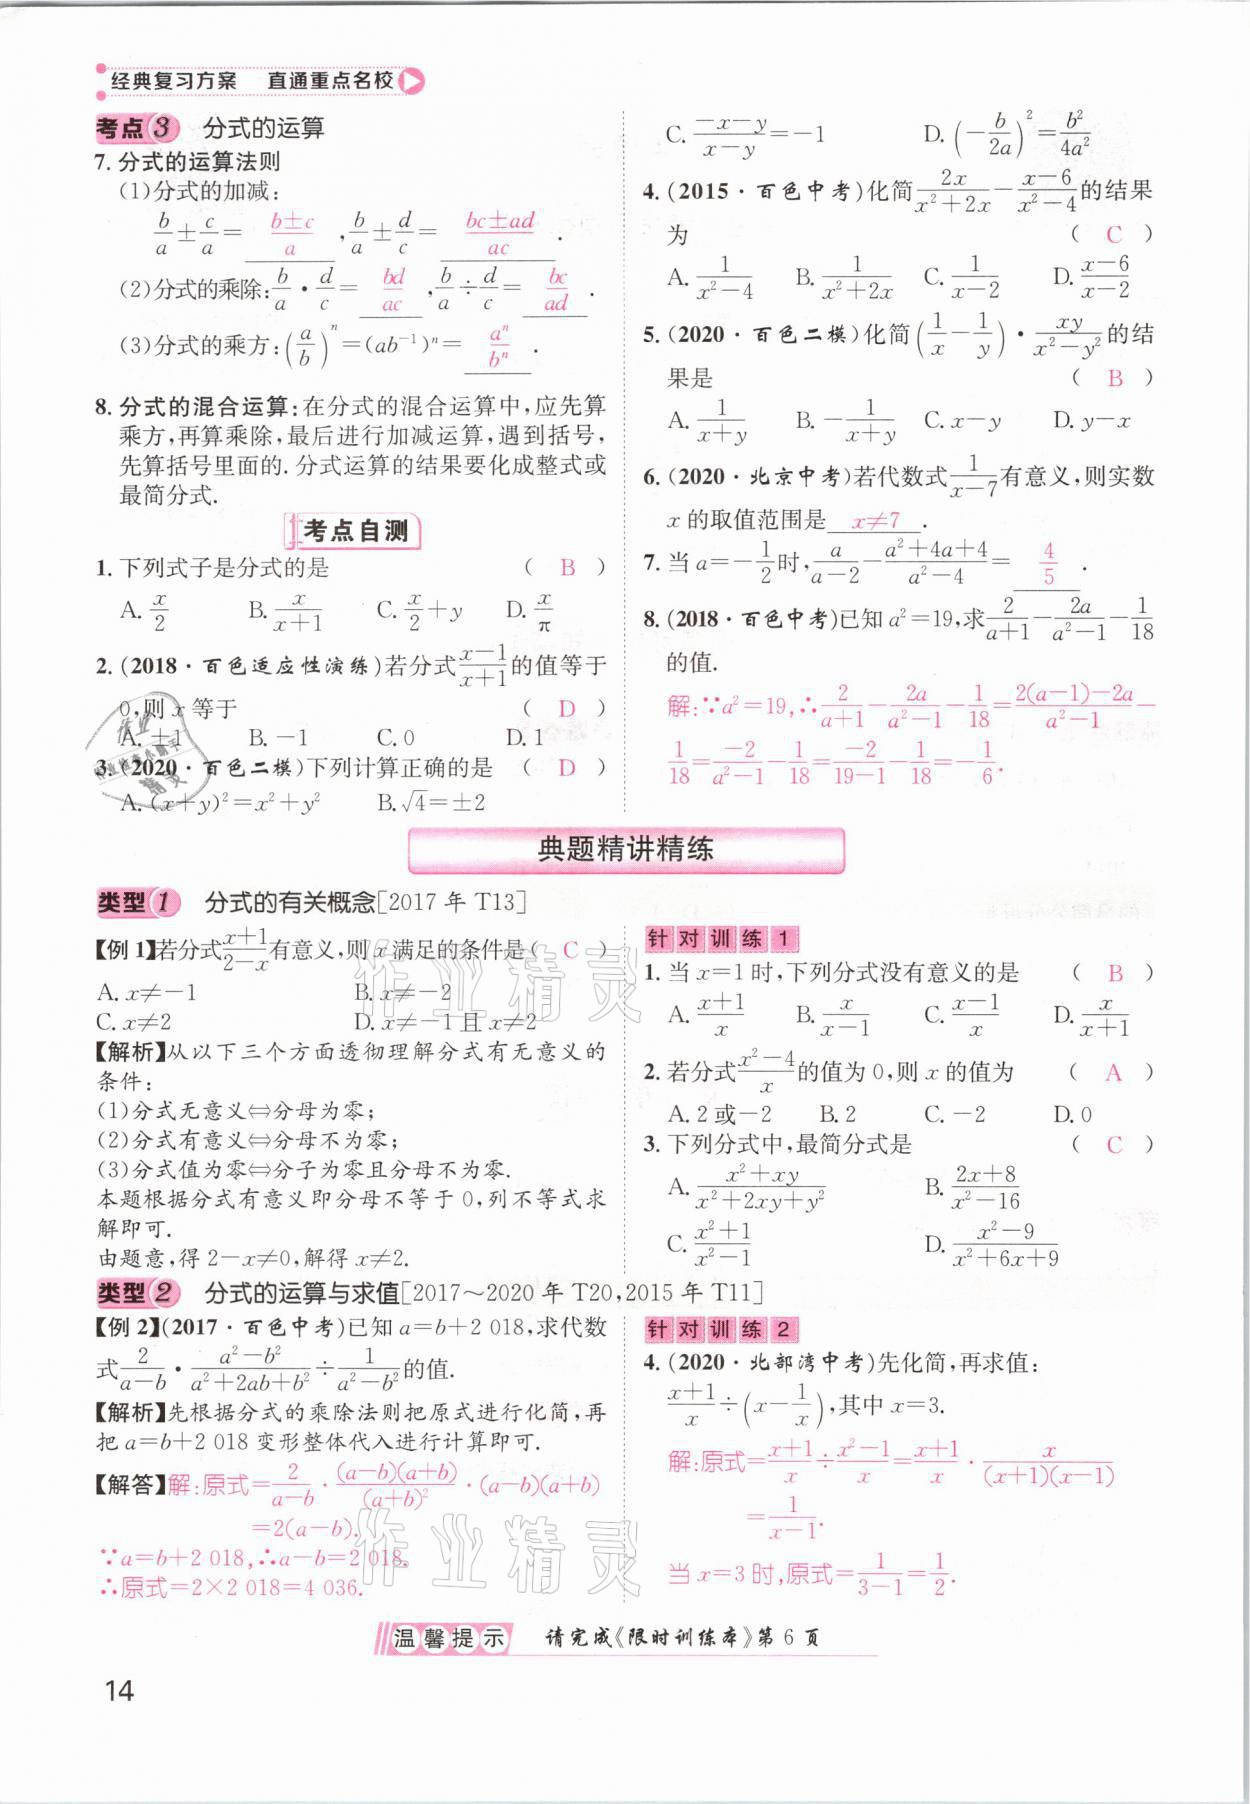 经典复习方案 直通重点名校
考点3 分式的运算
7. 分式的运算法则
(1)分式的加减:
b/a±c/a= (b±c)/a , b/a±d/c= (bc±ad)/ac .
(2)分式的乘除: b/a·d/c= bd/ac , b/a÷d/c= bc/ad .
(3)分式的乘方: (a/b)ⁿ=(ab⁻¹)ⁿ= aⁿ/bⁿ .
8. 分式的混合运算:在分式的混合运算中,应先算
乘方,再算乘除,最后进行加减运算,遇到括号,
先算括号里面的.分式运算的结果要化成整式或
最简分式.
考点自测
1. 下列式子是分式的是 ( B )
A. x/2 B. x/(x+1) C. x/2+y D. x/π
2. (2018·百色适应性演练)若分式(x-1)/(x+1)的值等于
0,则 x 等于 ( D )
A. ±1 B. -1 C. 0 D. 1
3. (2020·百色二模)下列计算正确的是 ( D )
A. (x+y)²=x²+y² B. √4=±2
C. (-x-y)/(x-y)=-1 D. (-b/2a)²=b²/4a²
4. (2015·百色中考)化简2x/(x²+2x)-(x-6)/(x²-4)的结果
为 ( C )
A. 1/(x²-4) B. 1/(x²+2x) C. 1/(x-2) D. (x-6)/(x-2)
5. (2020·百色二模)化简(1/x-1/y)·xy/(x²-y²)的结
果是 ( B )
A. 1/(x+y) B. -1/(x+y) C. x-y D. y-x
6. (2020·北京中考)若代数式1/(x-7)有意义,则实数
x 的取值范围是 x≠7 .
7. 当 a=-1/2时,a/(a-2)-(a²+4a+4)/(a²-4)= 4/5 .
8. (2018·百色中考)已知 a²=19,求2/(a+1)-2a/(a²-1)-1/18
的值.
解:∵a²=19,∴2/(a+1)-2a/(a²-1)-1/18=(2(a-1)-2a)/(a²-1)-
1/18=-2/(a²-1)-1/18=-2/(19-1)-1/18=-1/6.
典题精讲精练
类型1 分式的有关概念[2017 年 T13]
【例 1】若分式(x+1)/(2-x)有意义,则 x 满足的条件是( C )
A. x≠-1 B. x≠-2
C. x≠2 D. x≠-1 且 x≠2
【解析】从以下三个方面透彻理解分式有无意义的
条件:
(1)分式无意义⇔分母为零;
(2)分式有意义⇔分母不为零;
(3)分式值为零⇔分子为零且分母不为零.
本题根据分式有意义即分母不等于 0,列不等式求
解即可.
由题意,得 2-x≠0,解得 x≠2.
针对训练1
1. 当 x=1 时,下列分式没有意义的是 ( B )
A. (x+1)/x B. x/(x-1) C. (x-1)/x D. x/(x+1)
2. 若分式(x²-4)/x的值为 0,则 x 的值为 ( A )
A. 2 或-2 B. 2 C. -2 D. 0
3. 下列分式中,最简分式是 ( C )
A. (x²+xy)/(x²+2xy+y²) B. (2x+8)/(x²-16)
C. (x²+1)/(x²-1) D. (x²-9)/(x²+6x+9)
类型2 分式的运算与求值[2017～2020 年 T20,2015 年 T11]
【例 2】(2017·百色中考)已知 a=b+2 018,求代数
式2/(a-b)·(a²-b²)/(a²+2ab+b²)÷1/(a²-b²)的值.
【解析】先根据分式的乘除法则把原式进行化简,再
把 a=b+2 018 变形整体代入进行计算即可.
【解答】解:原式=2/(a-b)·(a-b)(a+b)/(a+b)²·(a-b)(a+b)
=2(a-b).
∵a=b+2 018,∴a-b=2 018.
∴原式=2×2 018=4 036.
针对训练2
4. (2020·北部湾中考)先化简,再求值:
(x+1)/x÷(x-1/x),其中 x=3.
解:原式=(x+1)/x÷(x²-1)/x=(x+1)/x·x/((x+1)(x-1))
=1/(x-1).
当 x=3 时,原式=1/(3-1)=1/2.
温馨提示 请完成《限时训练本》第 6 页
14
作业精灵
作业精灵